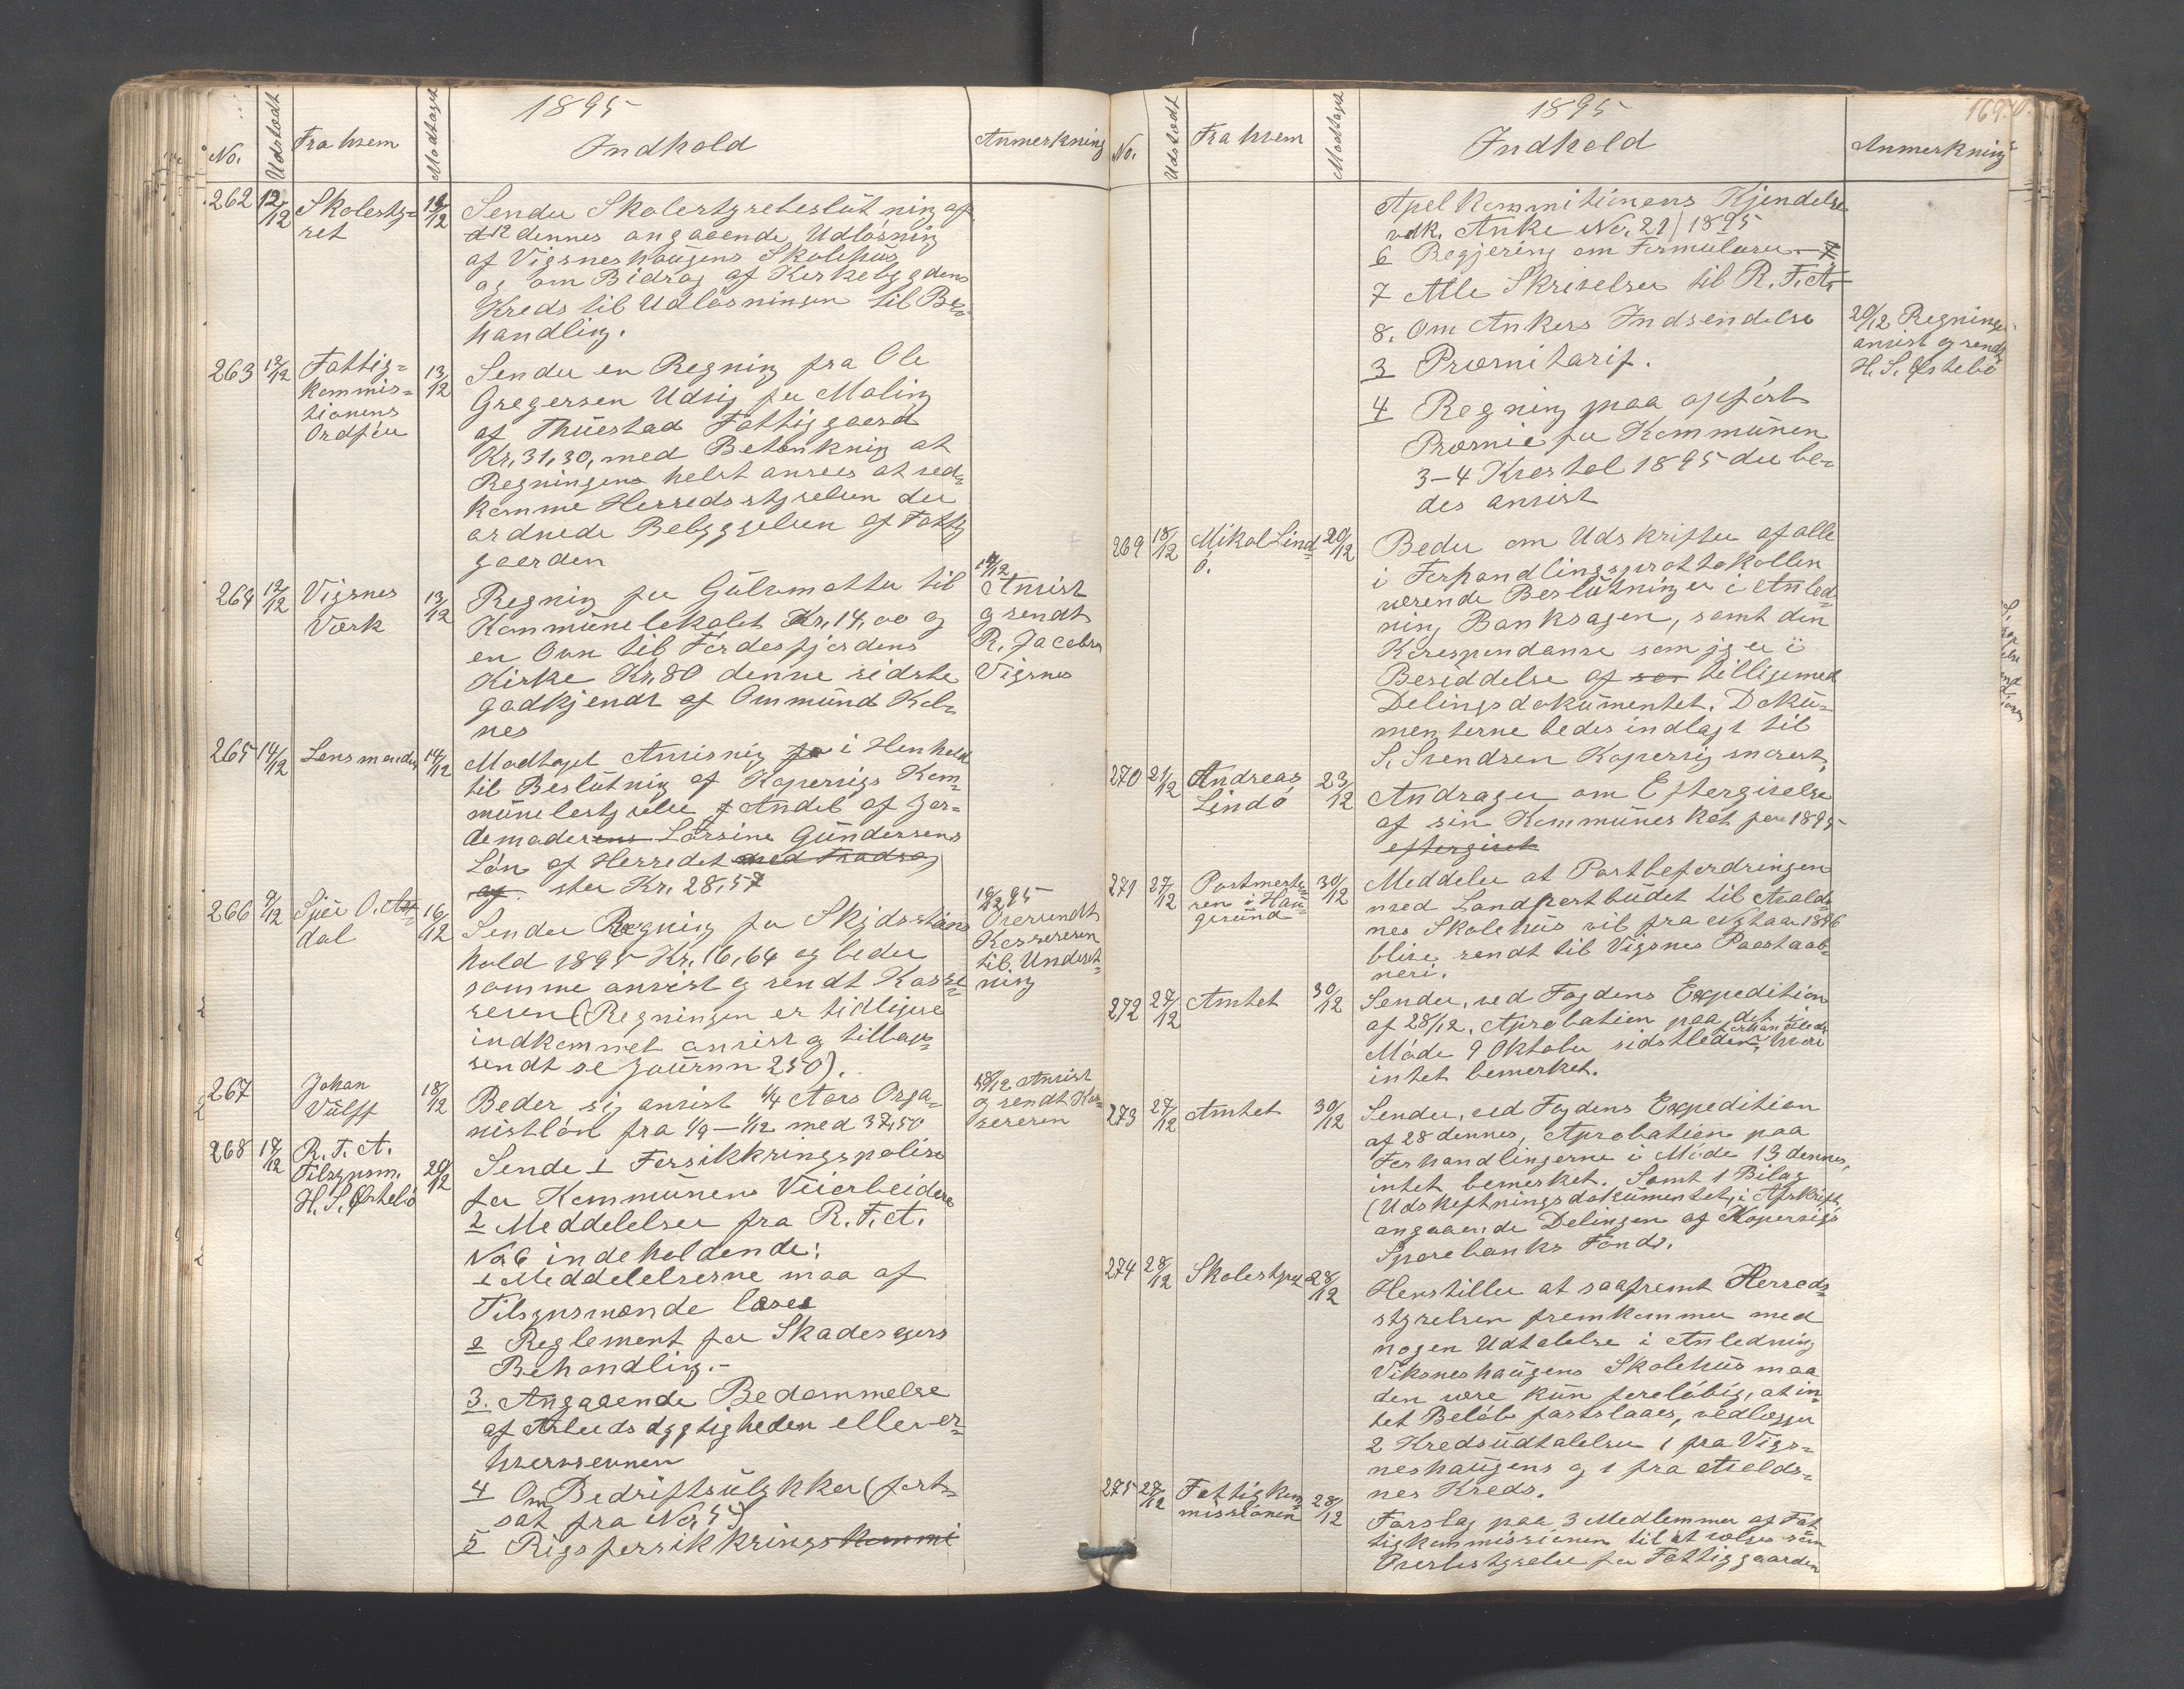 1895
No. Udstædt Fra hvem Modtaget Indhold Anmerkning
262 12/12 Skolesty=
ret
Sender Skolestyrebeslutning af
d 12 dennes angaaende Udløsning
af Vigsneshaugens Skolehus
og om Bidrag af Kirkebygdens
Kreds til Udløsningen til Be=
handling.
263 12/12 Fattig=
kommis=
tionens
Ordfører
13/12
Sender en Regning fra Ole
Gregersen Udvig for Maling
af Thuestad Fattiggaard
Kr. 31,30, med Betænkning at
Regningens helst ansees at ved=
komme Herredsstyrelsen der
ordnede Bebyggelsen af Fattig
gaarden
264 12/12 Vigsnes
Værk
13/12
Regning for Gulvmatter til
Kommunelokalet Kr. 14,00 og
en Ovn til Førdesfjordens
Kirke Kr. 80 denne sidste
godkjendt af Ommund Kol=
nes
Anvist
og sendt
R. Jacobsen
Vigsnes
265 14/12 Lensmanden 14/12
Modtaget Anvisning i Henhold
til Beslutning af Kopervigs Kom=
munebestyrelse Andel af Jor=
demoderens Larsine Gundersens
Løn af Herredet med Fradrag
af stor Kr. 28,57
266 9/12
dal
16/12
Sender Regning for Skydsstations
hold 1895 Kr. 16,64 og beder
samme anvist og sendt Kasse=
reren (Regningen er tidligere
indkommet anvist og tilbage=
sendt se Journ 250).
Oversendt
Kassereren
til Underret=
ning
267 Johan
Wulff
18/12
Beder sig anvist 1/4 Aars Orga=
nistløn fra 1/9 – 1/12 med 37,50
18/12 Anvist
og sendt Kas=
sereren
268 R. F. A.
Tilsynsm.
H. S. Østebø
20/12
Sende 1 Forsikkringspolise
for Kommunens Veiarbeidere
2 Meddelelser fra R. F. A.
No 6 indeholdende:
1 Meddelelserne maa af
Tilsynsmænde læses
2 Reglement for Skadesagers
Behandling.–
3. Angaaende Bedømmelse
af Arbeidsdygtigheden eller er=
hvervsevnen
4 Om Bedriftsulykker (fort=
sat fra No. 5)
5 Rigsforsikkrings kommi
1895
No. Udstædt Fra hvem Modtaget Indhold Anmerkning
Apelkommitionens Kjendelse
vedk. Anke No. 21/1895
6 Regjering om Formularer – 7.
7 Alle Skrivelser til R. F. A.
8. Om Ankers Indsendelse
3 Præmitarif.
4 Regning maa opført
Præmie for Kommunen
3–4 Kvartal 1895 der be=
des anvist
20/12 Regningen
anvist og sendt
H. S. Østebø
269 18/12 Mikal Lind=
ø.
20/12
Beder om Udskrifter af alle
i Forhandlingsprotokollen
værende Beslutninger i Anled=
ning Banksagen, samt den
Korespondanse som jeg er i
Besiddelse af tilligemed
Delingsdokumentet. Doku=
menterne bedes indlagt til
S. Svendsen Kopervig snarest.
270 21/12 Andreas
Lindø
23/12
Andrager om Eftergivelse
af sin Kommuneskat for 1895
eftergivet
271 27/12 Postmeste=
ren i Hau=
gesund
30/12
Meddeler at Postbefordringen
med Landpostbudet til Avalds=
nes Skolehus vil fra nytaar 1896
blive sendt til Vigsnes Poststaab=
neri.
272 27/12 Amtet 30/12
Sender, ved Fogdens Expedition
af 28/12, Aprobation paa det i
Møde 9 Oktober sidstleden forhandlede, hvori
intet bemerket.
273 27/12 Amtet 30/12
Sender, ved Fogdens Expedition
af 28 dennes, Aprobation paa
Forhandlingerne i Møde 13 dennes,
intet bemerket. Samt 1 Bilag
(Udskiftningsdokumentet, i Afskrift,
angaaende Delingen af Kopervigs
Sparebanks Fond).
274 28/12 Skolestyret 28/12
Henstiller at saafremt Herreds=
styrelsen fremkommer med
nogen Udtalelse i Anledning
Viksneshaugens Skolehus maa
den være kun foreløbig, at in=
tet Beløb fastslaaes, vedlægger
2 Kredsudtalelser 1 fra Vigs=
neshaugens og 1 fra Avalds=
nes Kreds.
275 27/12 Fattigkom=
missionen
28/12
Forslag paa 3 Medlemmer af Fat=
tigkommissionen til at vælges som
for Fattiggaarden